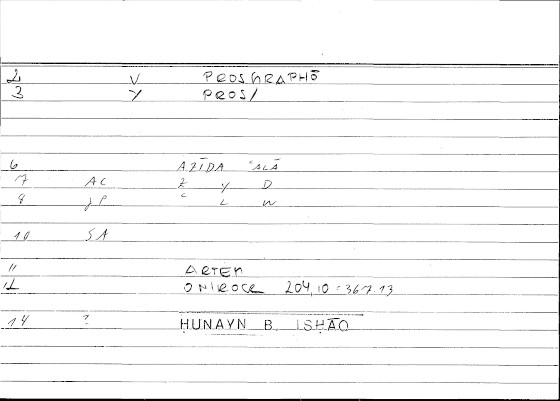 2 V PROSGRAPHŌ
3 Y PROS/
6 AZĪDA ʿALĀ
7 AC Z Y D
8 JP C L W
10 SA
11 ARTEM
12 ONIROCR 204,10 = 367.13
14 ? ḤUNAYN B. ISḤĀQ